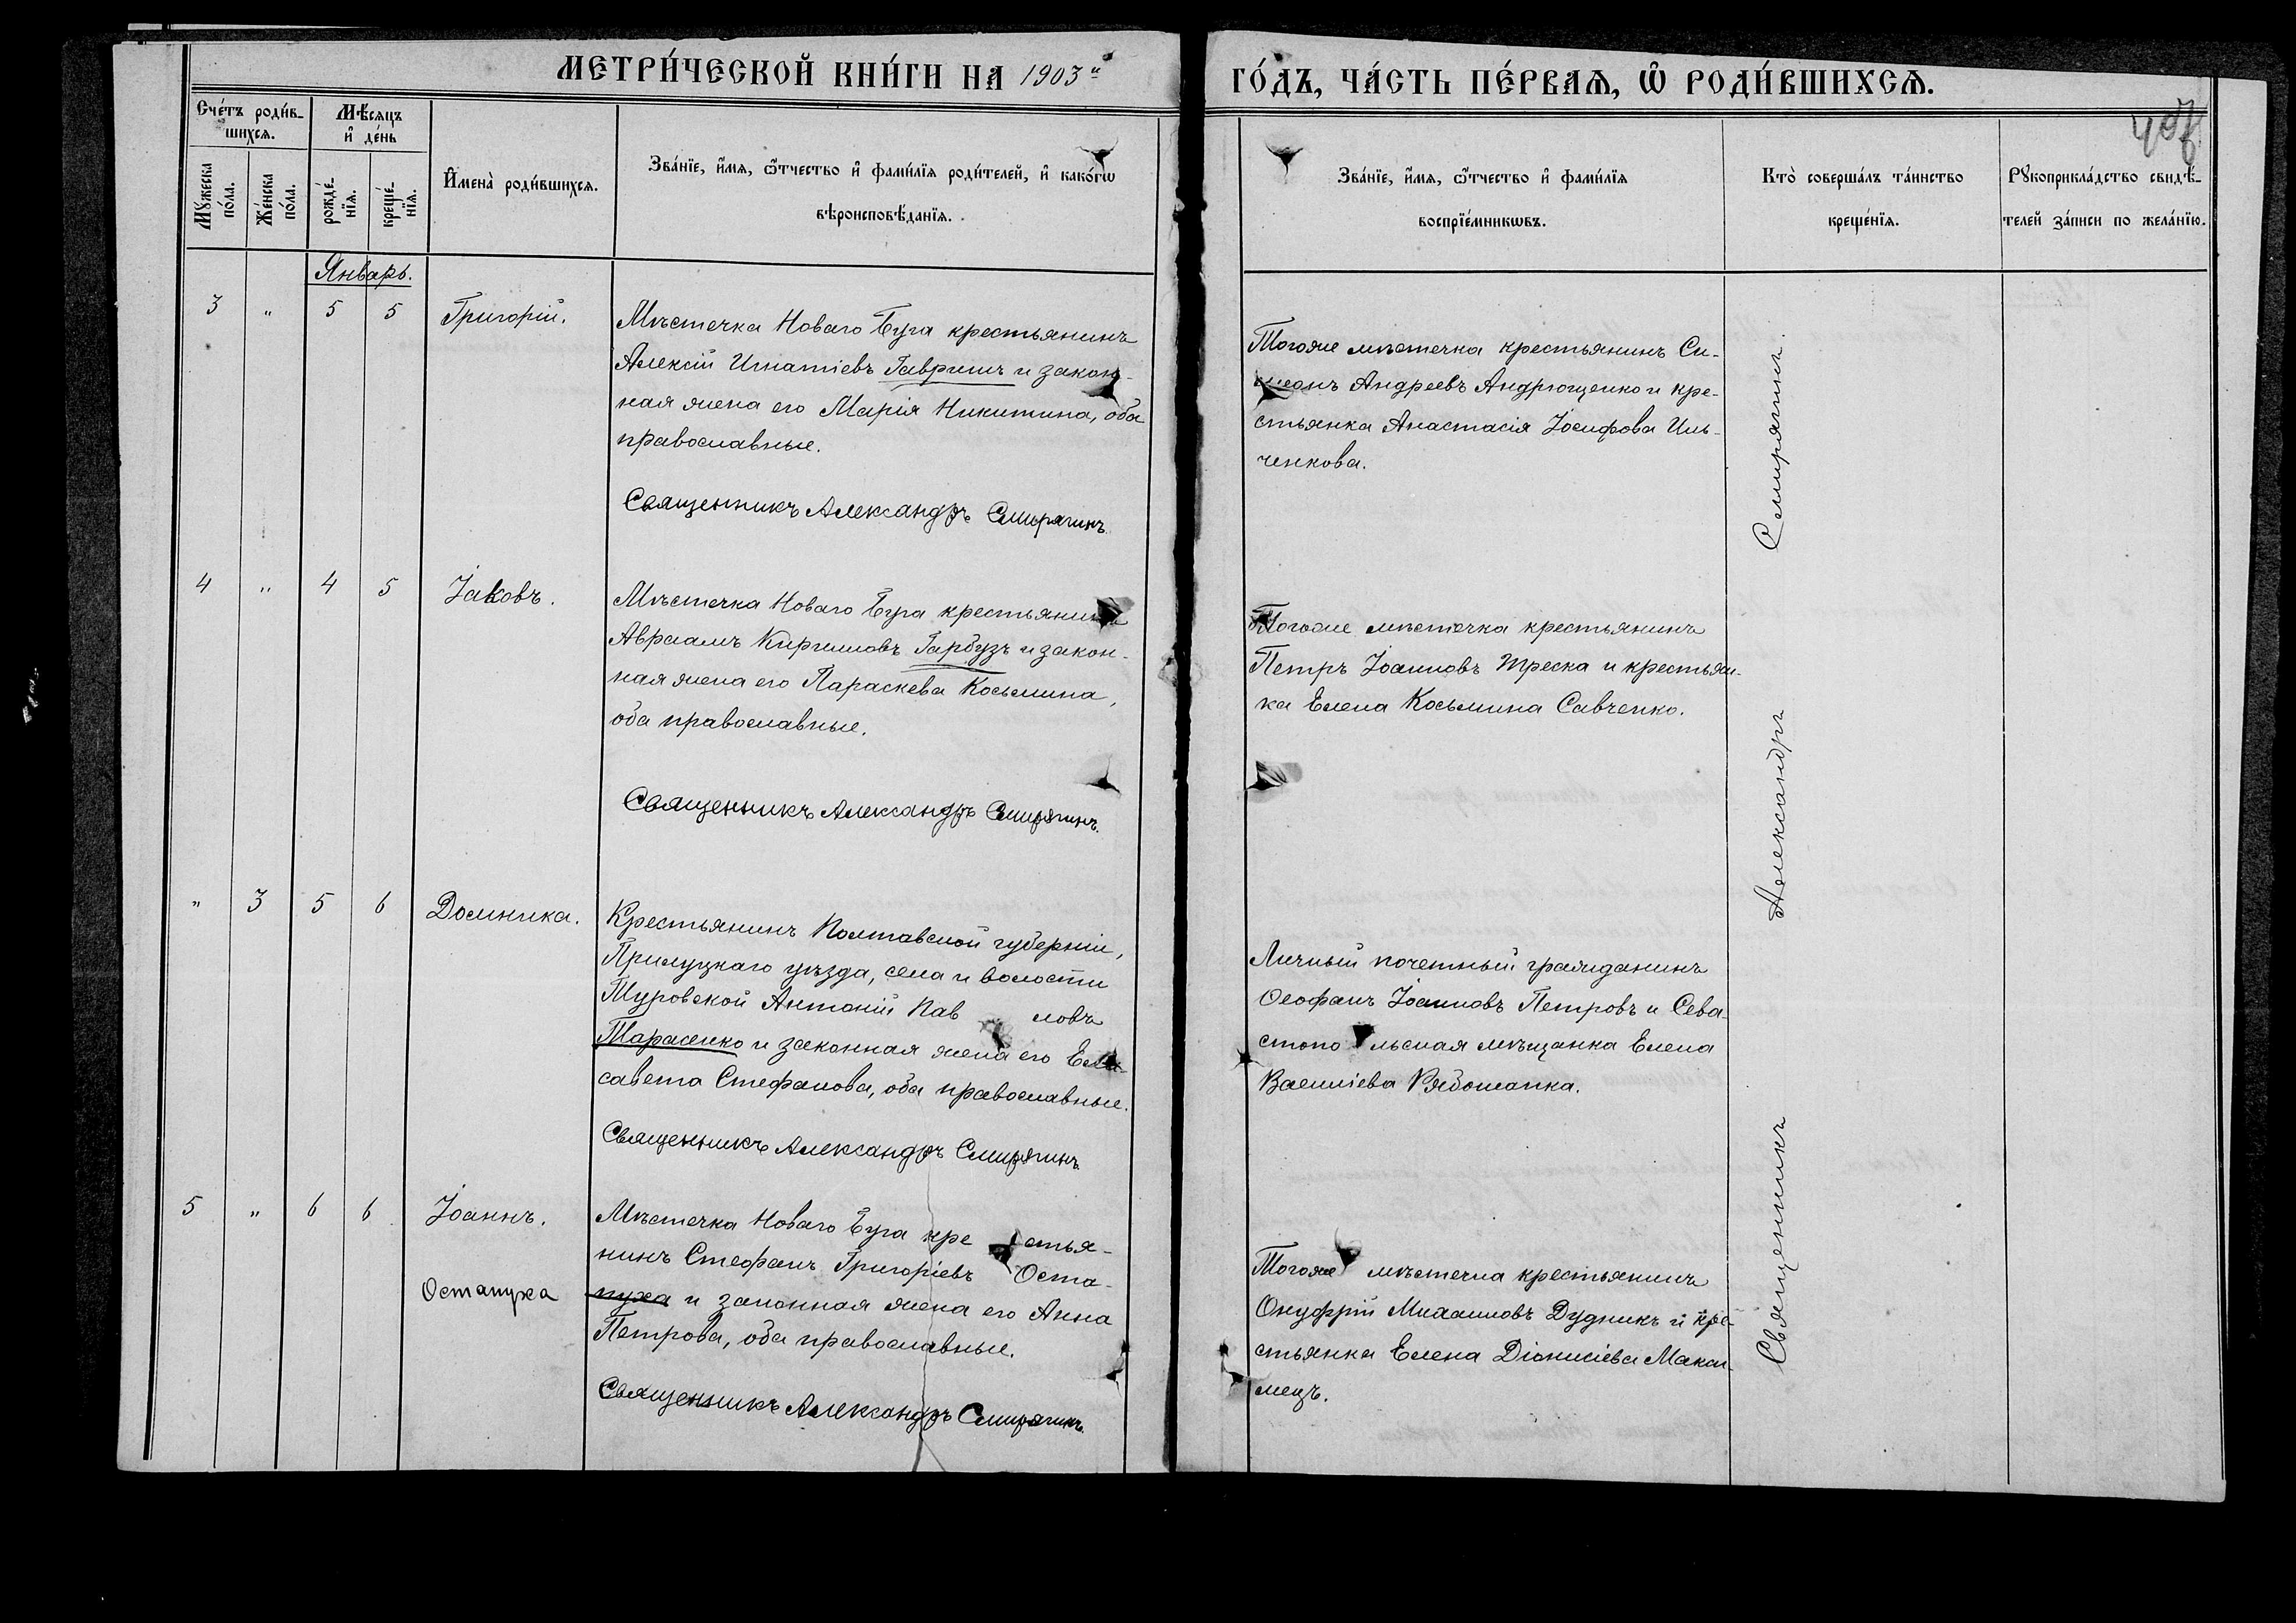 МЕТРИ́ЧЕСКОЙ КНИ́ГИ НА 1903й
ГО́ДЪ, ЧА́СТЬ ПЕ́РВАѦ, Ѡ҆ РОДИ́ВШИХСѦ.
Сче́тъ роди́в-
шихсѧ.
Мѣ́сѧцъ
и҆ де́нь
Мꙋ́жеска
по́ла.
Же́нска
по́ла.
рожде́-
нїѧ.
креще́-
нїѧ.
И҆мена̀ роди́вшихсѧ.
Зва́нїе, и҆́мѧ, ѻ҆́тчество и҆ фами́лїѧ роди́телей, и҆ како́гѡ
вѣроисповѣ́данїѧ.
Зва́нїе, и҆́мѧ, ѻ҆́тчество и҆ фами́лїѧ
воспрїе́мникѡвъ.
Кто̀ соверша́лъ та́инство
креще́нїѧ.
Рꙋкоприкла́дство свидѣ́-
телей за́писи по жела́нїю.
Январь.
3 " 5 5 Григорій.
Мѣстечка Новаго Буга крестьянинъ
Алексій Игнатіевъ Гавришъ и закон-
ная жена его Марія Никитина, оба
православные.
Священникъ Александръ Смирягинъ.
Тогоже мѣстечка крестьянинъ Си-
меонъ Андреевъ Андрющенко и кре-
стьянка Анастасія Іосифова Иль-
ченкова.
4 " 4 5 Іаковъ.
Мѣстечка Новаго Буга крестьянинъ
Авраамъ Кирилловъ Гарбузъ и закон-
ная жена его Параскева Косьмина,
оба православные.
Священникъ Александръ Смирягинъ.
Тогоже мѣстечка крестьянинъ
Петръ Іоанновъ Треска и крестьян-
ка Елена Косьмина Савченко.
" 3 5 6 Домника.
Крестьянинъ Полтавской губерніи,
Прилуцкаго уѣзда, села и волости
Муровской Антоній Пав ловъ
Тарасенко и законная жена его Ели-
савета Стефанова, оба православные.
Священникъ Александръ Смирягинъ
Личный почетный гражданинъ
Ѳеофанъ Іоанновъ Петровъ и Сева-
стопо льская мѣщанка Елена
Василіева Рябошапка.
5 " 6 6 Іоаннъ.
Остапуха
Мѣстечка Новаго Буга кре стья-
нинъ Стефанъ Григоріевъ Оста-
пуха и законная жена его Анна
Петрова, оба православные.
Священникъ Александръ Смирягинъ.
Тогоже мѣстечка крестьянинъ
Онуфрій Михаиловъ Дудникъ и кре-
стьянка Елена Діонисіева Макси-
мецъ.
Священникъ Александръ Смирягинъ.